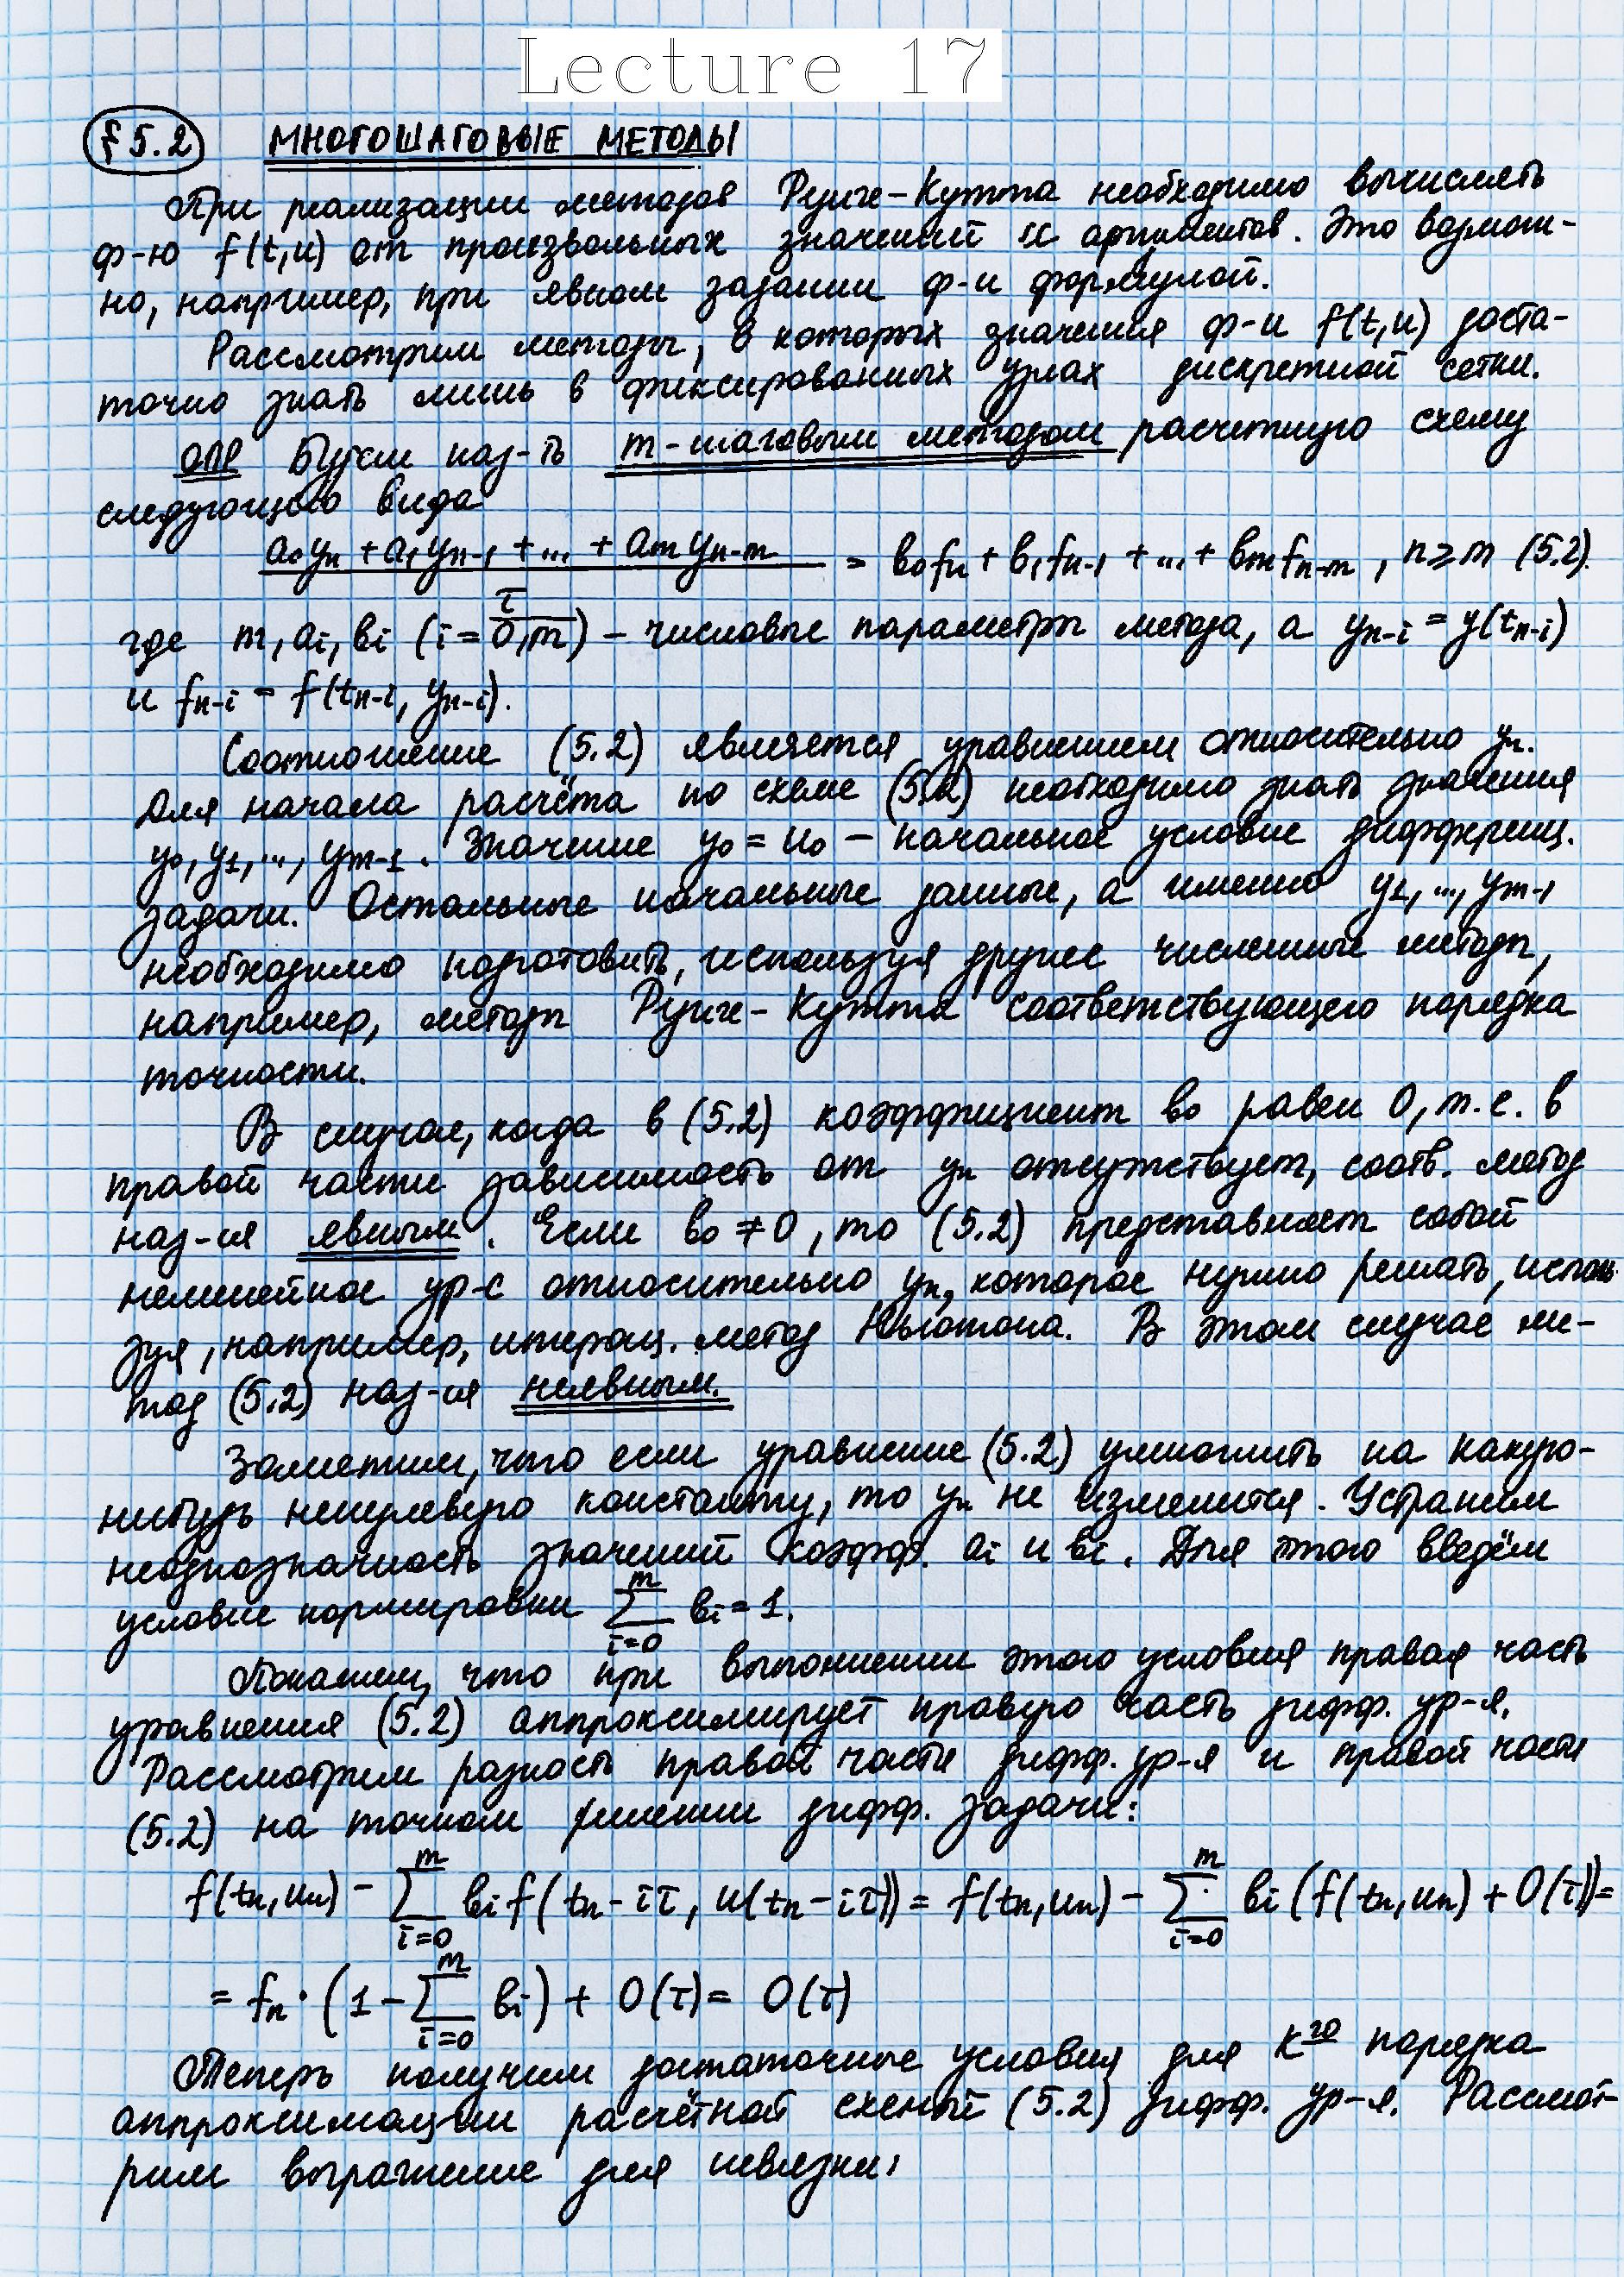 Lecture 17
§ 5.2 МНОГОШАГОВЫЕ МЕТОДЫ
При реализации методов Рунге-Кутта необходимо вычислять
ф-ю f(t,u) от произвольных значений их аргументов. Это возмож-
но, например, при явном задании ф-и формулой.
Рассмотрим методы, в которых значения ф-и f(t,u) доста-
точно знать лишь в фиксированных узлах дискретной сетки.
ОПР Будем наз-ть m-шаговым методом расчетную схему
следующего вида
(a₀yₙ + a₁yₙ₋₁ + ... + aₘyₙ₋ₘ) / τ = b₀fₙ + b₁fₙ₋₁ + ... + bₘfₙ₋ₘ, n ≥ m (5.2).
где m, aᵢ, bᵢ (i = 0,m) – числовые параметры метода, а yₙ₋ᵢ = y(tₙ₋ᵢ)
и fₙ₋ᵢ = f(tₙ₋ᵢ, yₙ₋ᵢ).
Соотношение (5.2) является уравнением относительно yₙ.
Для начала расчёта по схеме (5.2) необходимо знать значения
y₀, y₁, ..., yₘ₋₁. Значение y₀ = u₀ – начальное условие дифференц.
задачи. Остальные начальные данные, а именно y₁, ..., yₘ₋₁
необходимо подготовить, используя другие численные методы,
например, методы Рунге-Кутта соответствующего порядка
точности.
В случае, когда в (5.2) коэффициент b₀ равен 0, т.е. в
правой части зависимость от yₙ отсутствует, соотв. метод
наз-ся явным. Если b₀ ≠ 0, то (5.2) представляет собой
нелинейное ур-е относительно yₙ, которое нужно решать, исполь
зуя, например, итерац. метод Ньютона. В этом случае ме-
тод (5.2) наз-ся неявным.
Заметим, что если уравнение (5.2) умножить на какую-
нибудь ненулевую константу, то yₙ не изменится. Устраним
неоднозначность значений коэфф. aᵢ и bᵢ. Для этого введём
условие нормировки ∑ᵢ₌₀ᵐ bᵢ = 1.
Покажем, что при выполнении этого условия правая часть
уравнения (5.2) аппроксимирует правую часть дифф. ур-я.
Рассмотрим разность правой части дифф. ур-я и правой части
(5.2) на точном решении дифф. задачи:
f(tₙ,uₙ) - ∑ᵢ₌₀ᵐ bᵢ f(tₙ - iτ, u(tₙ - iτ)) = f(tₙ,uₙ) - ∑ᵢ₌₀ᵐ bᵢ (f(tₙ,uₙ) + O(τ)) =
= fₙ · (1 - ∑ᵢ₌₀ᵐ bᵢ) + O(τ) = O(τ)
Теперь получим достаточные условия для kго порядка
аппроксимации расчётной схемой (5.2) дифф. ур-я. Рассмот-
рим выражение для невязки: